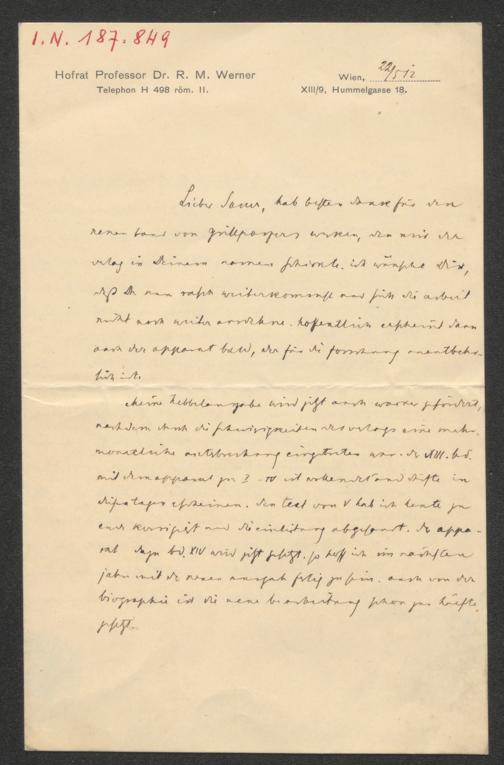 I.N. 187.849
Hofrat Professor Dr. R. M. Werner
Telephon H 498 röm. II.
Wien, 22/5 12
XIII/9, Hummelgasse 18.
Lieber Sauer, hab besten dank für den
neuen band von Grillparzers werken, den mir der
verlag in Deinem namen schickte. ich wünsche Dir,
daß Du nun rasch weiterkommst und sich die arbeit
nicht noch weiter ausdehne. hoffentlich erscheint dann
auch der apparat bald, der für die forschung unentbehr-
lich ist.
Meine Hebbelausgabe wird jetzt auch wieder gefördert,
nachdem durch die schwierigkeiten des verlags eine mehr-
monatliche unterbrechung eingetreten war. der XIII. bd.
mit dem apparat zu I - IV ist vollendet und dürfte in
diesen tagen erscheinen. den text von V hab ich heute zu
ende korrigiert und die einleitung abgesandt. der appa-
rat dazu bd. XIV wird jetzt gesetzt. so hoff ich im nächsten
jahr mit der neuen ausgabe fertig zu sein. auch von der
biographie ist die neue bearbeitung schon zur hälfte
gesetzt.